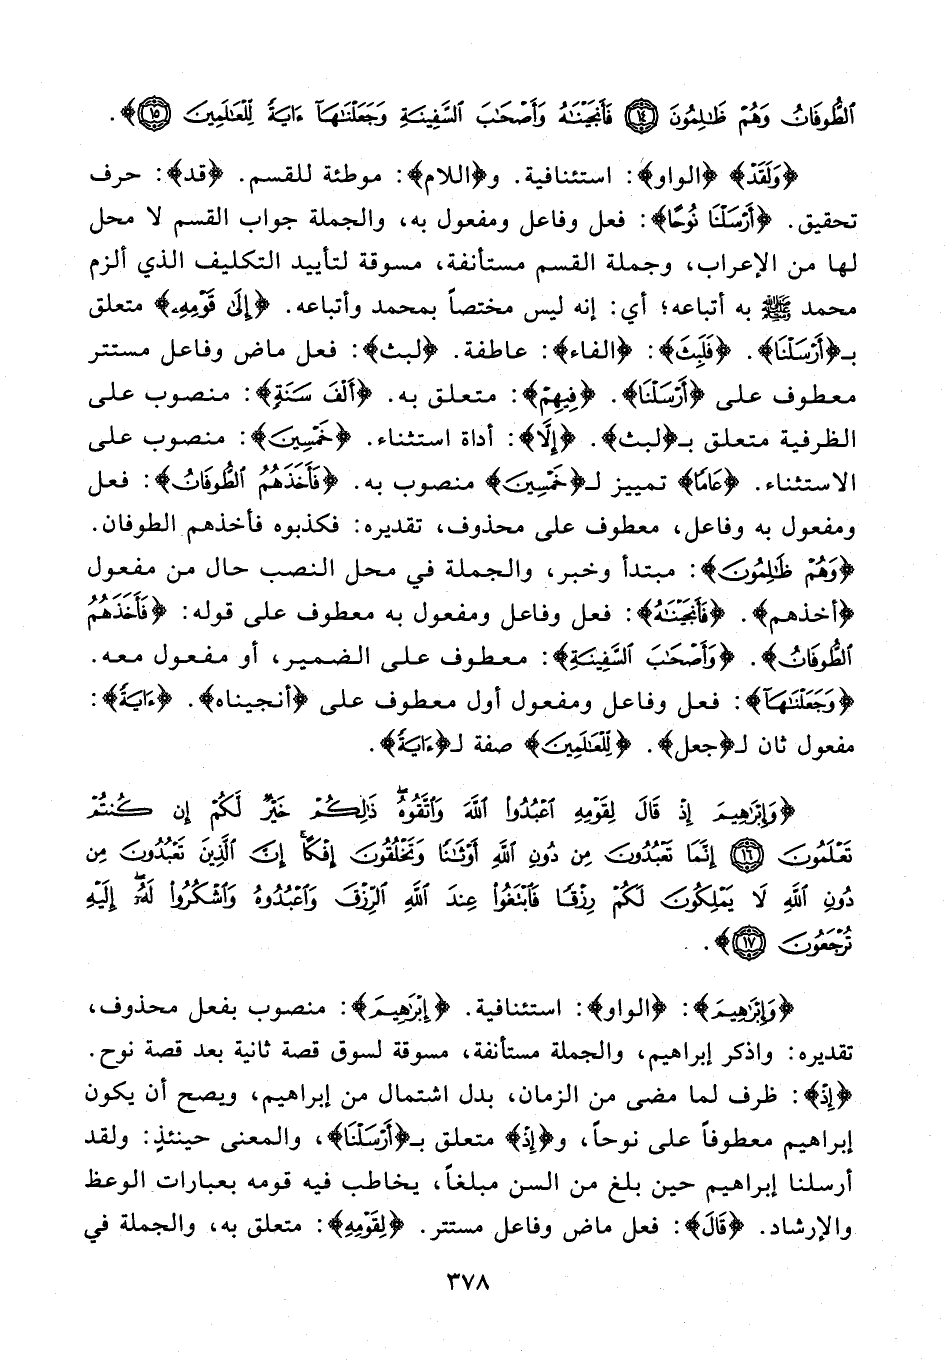 ٱلطُّوفَانُ وَهُمْ ظَٰلِمُونَ ﴿١٤﴾ فَأَنجَيْنَٰهُ وَأَصْحَٰبَ ٱلسَّفِينَةِ وَجَعَلْنَٰهَآ ءَايَةً لِّلْعَٰلَمِينَ ﴿١٥﴾﴾.
﴿وَلَقَدْ﴾ ﴿الواو﴾: استئنافية. و﴿اللام﴾: موطئة للقسم. ﴿قد﴾: حرف
تحقيق. ﴿أَرْسَلْنَا نُوحًا﴾: فعل وفاعل ومفعول به، والجملة جواب القسم لا محل
لها من الإعراب، وجملة القسم مستأنفة، مسوقة لتأييد التكليف الذي ألزم
محمد ﷺ به أتباعه؛ أي: إنه ليس مختصاً بمحمد وأتباعه. ﴿إِلَىٰ قَوْمِهِۦ﴾ متعلق
بـ﴿أَرْسَلْنَا﴾. ﴿فَلَبِثَ﴾: ﴿الفاء﴾: عاطفة. ﴿لبث﴾: فعل ماض وفاعل مستتر
معطوف على ﴿أَرْسَلْنَا﴾. ﴿فِيهِمْ﴾: متعلق به. ﴿أَلْفَ سَنَةٍ﴾: منصوب على
الظرفية متعلق بـ﴿لبث﴾. ﴿إِلَّا﴾: أداة استثناء. ﴿خَمْسِينَ﴾: منصوب على
الاستثناء. ﴿عَامًا﴾ تمييز لـ﴿خَمْسِينَ﴾ منصوب به. ﴿فَأَخَذَهُمُ ٱلطُّوفَانُ﴾: فعل
ومفعول به وفاعل، معطوف على محذوف، تقديره: فكذبوه فأخذهم الطوفان.
﴿وَهُمْ ظَٰلِمُونَ﴾: مبتدأ وخبر، والجملة في محل النصب حال من مفعول
﴿أخذهم﴾. ﴿فَأَنجَيْنَٰهُ﴾: فعل وفاعل ومفعول به معطوف على قوله: ﴿فَأَخَذَهُمُ
ٱلطُّوفَانُ﴾. ﴿وَأَصْحَٰبَ ٱلسَّفِينَةِ﴾: معطوف على الضمير، أو مفعول معه.
﴿وَجَعَلْنَٰهَآ﴾: فعل وفاعل ومفعول أول معطوف على ﴿أنجيناه﴾. ﴿ءَايَةً﴾:
مفعول ثان لـ﴿جعل﴾. ﴿لِّلْعَٰلَمِينَ﴾ صفة لـ﴿ءَايَةً﴾.
﴿وَإِبْرَٰهِيمَ إِذْ قَالَ لِقَوْمِهِ ٱعْبُدُوا۟ ٱللَّهَ وَٱتَّقُوهُ ۖ ذَٰلِكُمْ خَيْرٌ لَّكُمْ إِن كُنتُمْ
تَعْلَمُونَ ﴿١٦﴾ إِنَّمَا تَعْبُدُونَ مِن دُونِ ٱللَّهِ أَوْثَٰنًا وَتَخْلُقُونَ إِفْكًا ۚ إِنَّ ٱلَّذِينَ تَعْبُدُونَ مِن
دُونِ ٱللَّهِ لَا يَمْلِكُونَ لَكُمْ رِزْقًا فَٱبْتَغُوا۟ عِندَ ٱللَّهِ ٱلرِّزْقَ وَٱعْبُدُوهُ وَٱشْكُرُوا۟ لَهُۥٓ ۖ إِلَيْهِ
تُرْجَعُونَ ﴿١٧﴾﴾.
﴿وَإِبْرَٰهِيمَ﴾: ﴿الواو﴾: استئنافية. ﴿إِبْرَٰهِيمَ﴾: منصوب بفعل محذوف،
تقديره: واذكر إبراهيم، والجملة مستأنفة، مسوقة لسوق قصة ثانية بعد قصة نوح.
﴿إِذْ﴾: ظرف لما مضى من الزمان، بدل اشتمال من إبراهيم، ويصح أن يكون
إبراهيم معطوفاً على نوحاً، و﴿إِذْ﴾ متعلق بـ﴿أَرْسَلْنَا﴾، والمعنى حينئذٍ: ولقد
أرسلنا إبراهيم حين بلغ من السن مبلغاً، يخاطب فيه قومه بعبارات الوعظ
والإرشاد. ﴿قَالَ﴾: فعل ماض وفاعل مستتر. ﴿لِقَوْمِهِ﴾: متعلق به، والجملة في
٣٧٨